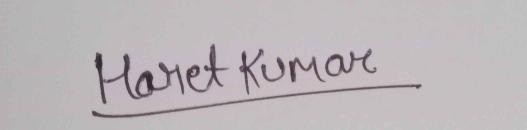 Haret Kumar